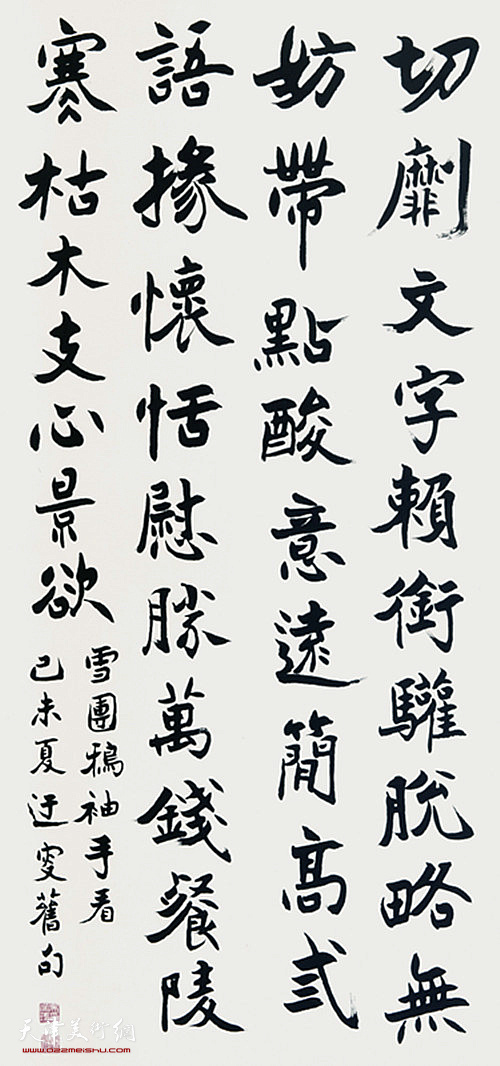 切劘文字賴銜驩脫略無
妨帶點酸意遠簡高弎
語掾懷恬慰勝萬錢餐陵
寒枯木支心景欲
雪團鴉袖手看
己未夏迂叟舊句
天津美術網
www.022meishu.com